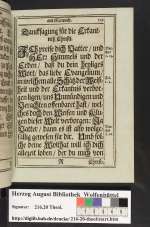 Danksagung für die Erkant-
nüß Christi.
ICh preise dich Vatter / und
HErr Himmels und der
Erden / daß du dein heiliges
Wort / das liebe Evangelium /
in welchem alle Schätze der Weiß-
heit und der Erkantnus verbor-
gen ligen / uns Unmündigen und
Geringen offenbaret hast / wel-
ches doch den Weisen und Klu-
gen dieser Welt verborgen: Ja
Vatter / dann es ist also wolge-
fällig gewesen für dir. Und für
solche deine Wolthat will ich dich
allezeit loben / der du mich von
R
Herzog August Bibliothek Wolfenbüttel
Signatur: 216.20 Theol.
http://diglib.hab.de/drucke/216-20-theol/start.htm